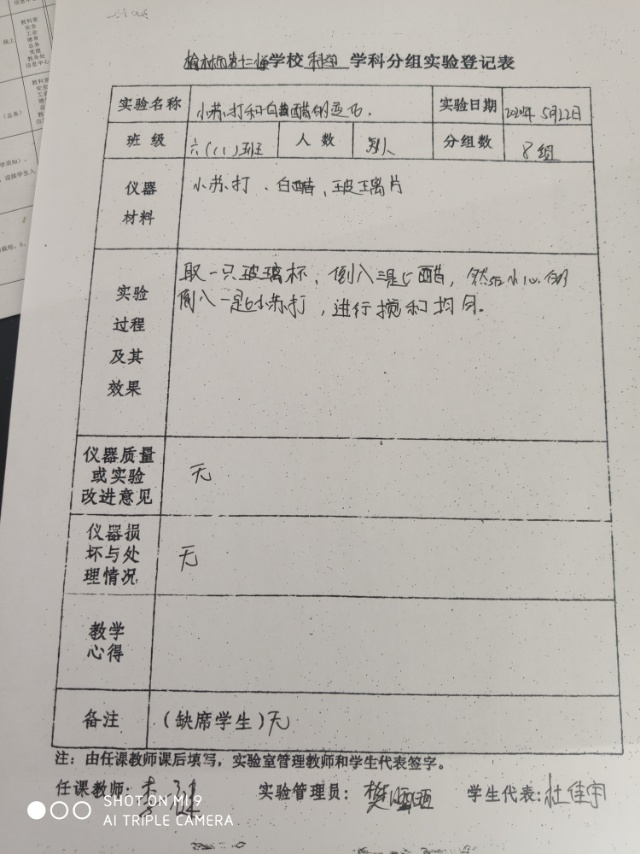 学校 科学 学科分组实验登记表
实验名称 小苏打和白醋的变化. 实验日期 5月22日
班 级 六(11)班 人 数 人 分组数 8组
仪器 小苏打、白醋、玻璃片
材料
取一只玻璃杯, 倒入三是匕醋, 然后小心的
倒入一是匕小苏打, 进行搅和均匀.
实验
过程
及其
效果
仪器质量
或实验
改进意见
无
仪器损
坏与处
理情况
无
教学
心得
备注 (缺席学生)无
注: 由任课教师课后填写, 实验室管理教师和学生代表签字。
任课教师: 李 实验管理员: 樊 学生代表: 杜佳宇
SHOT ON MI 9
AI TRIPLE CAMERA